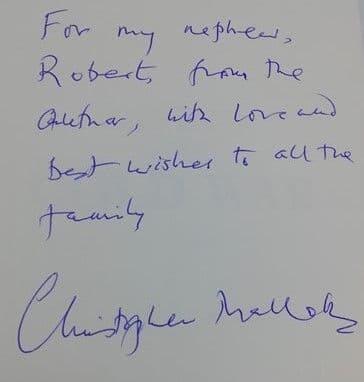 For my nephew,
Robert, from the
Author, with love and
best wishes to all the
family
Christopher